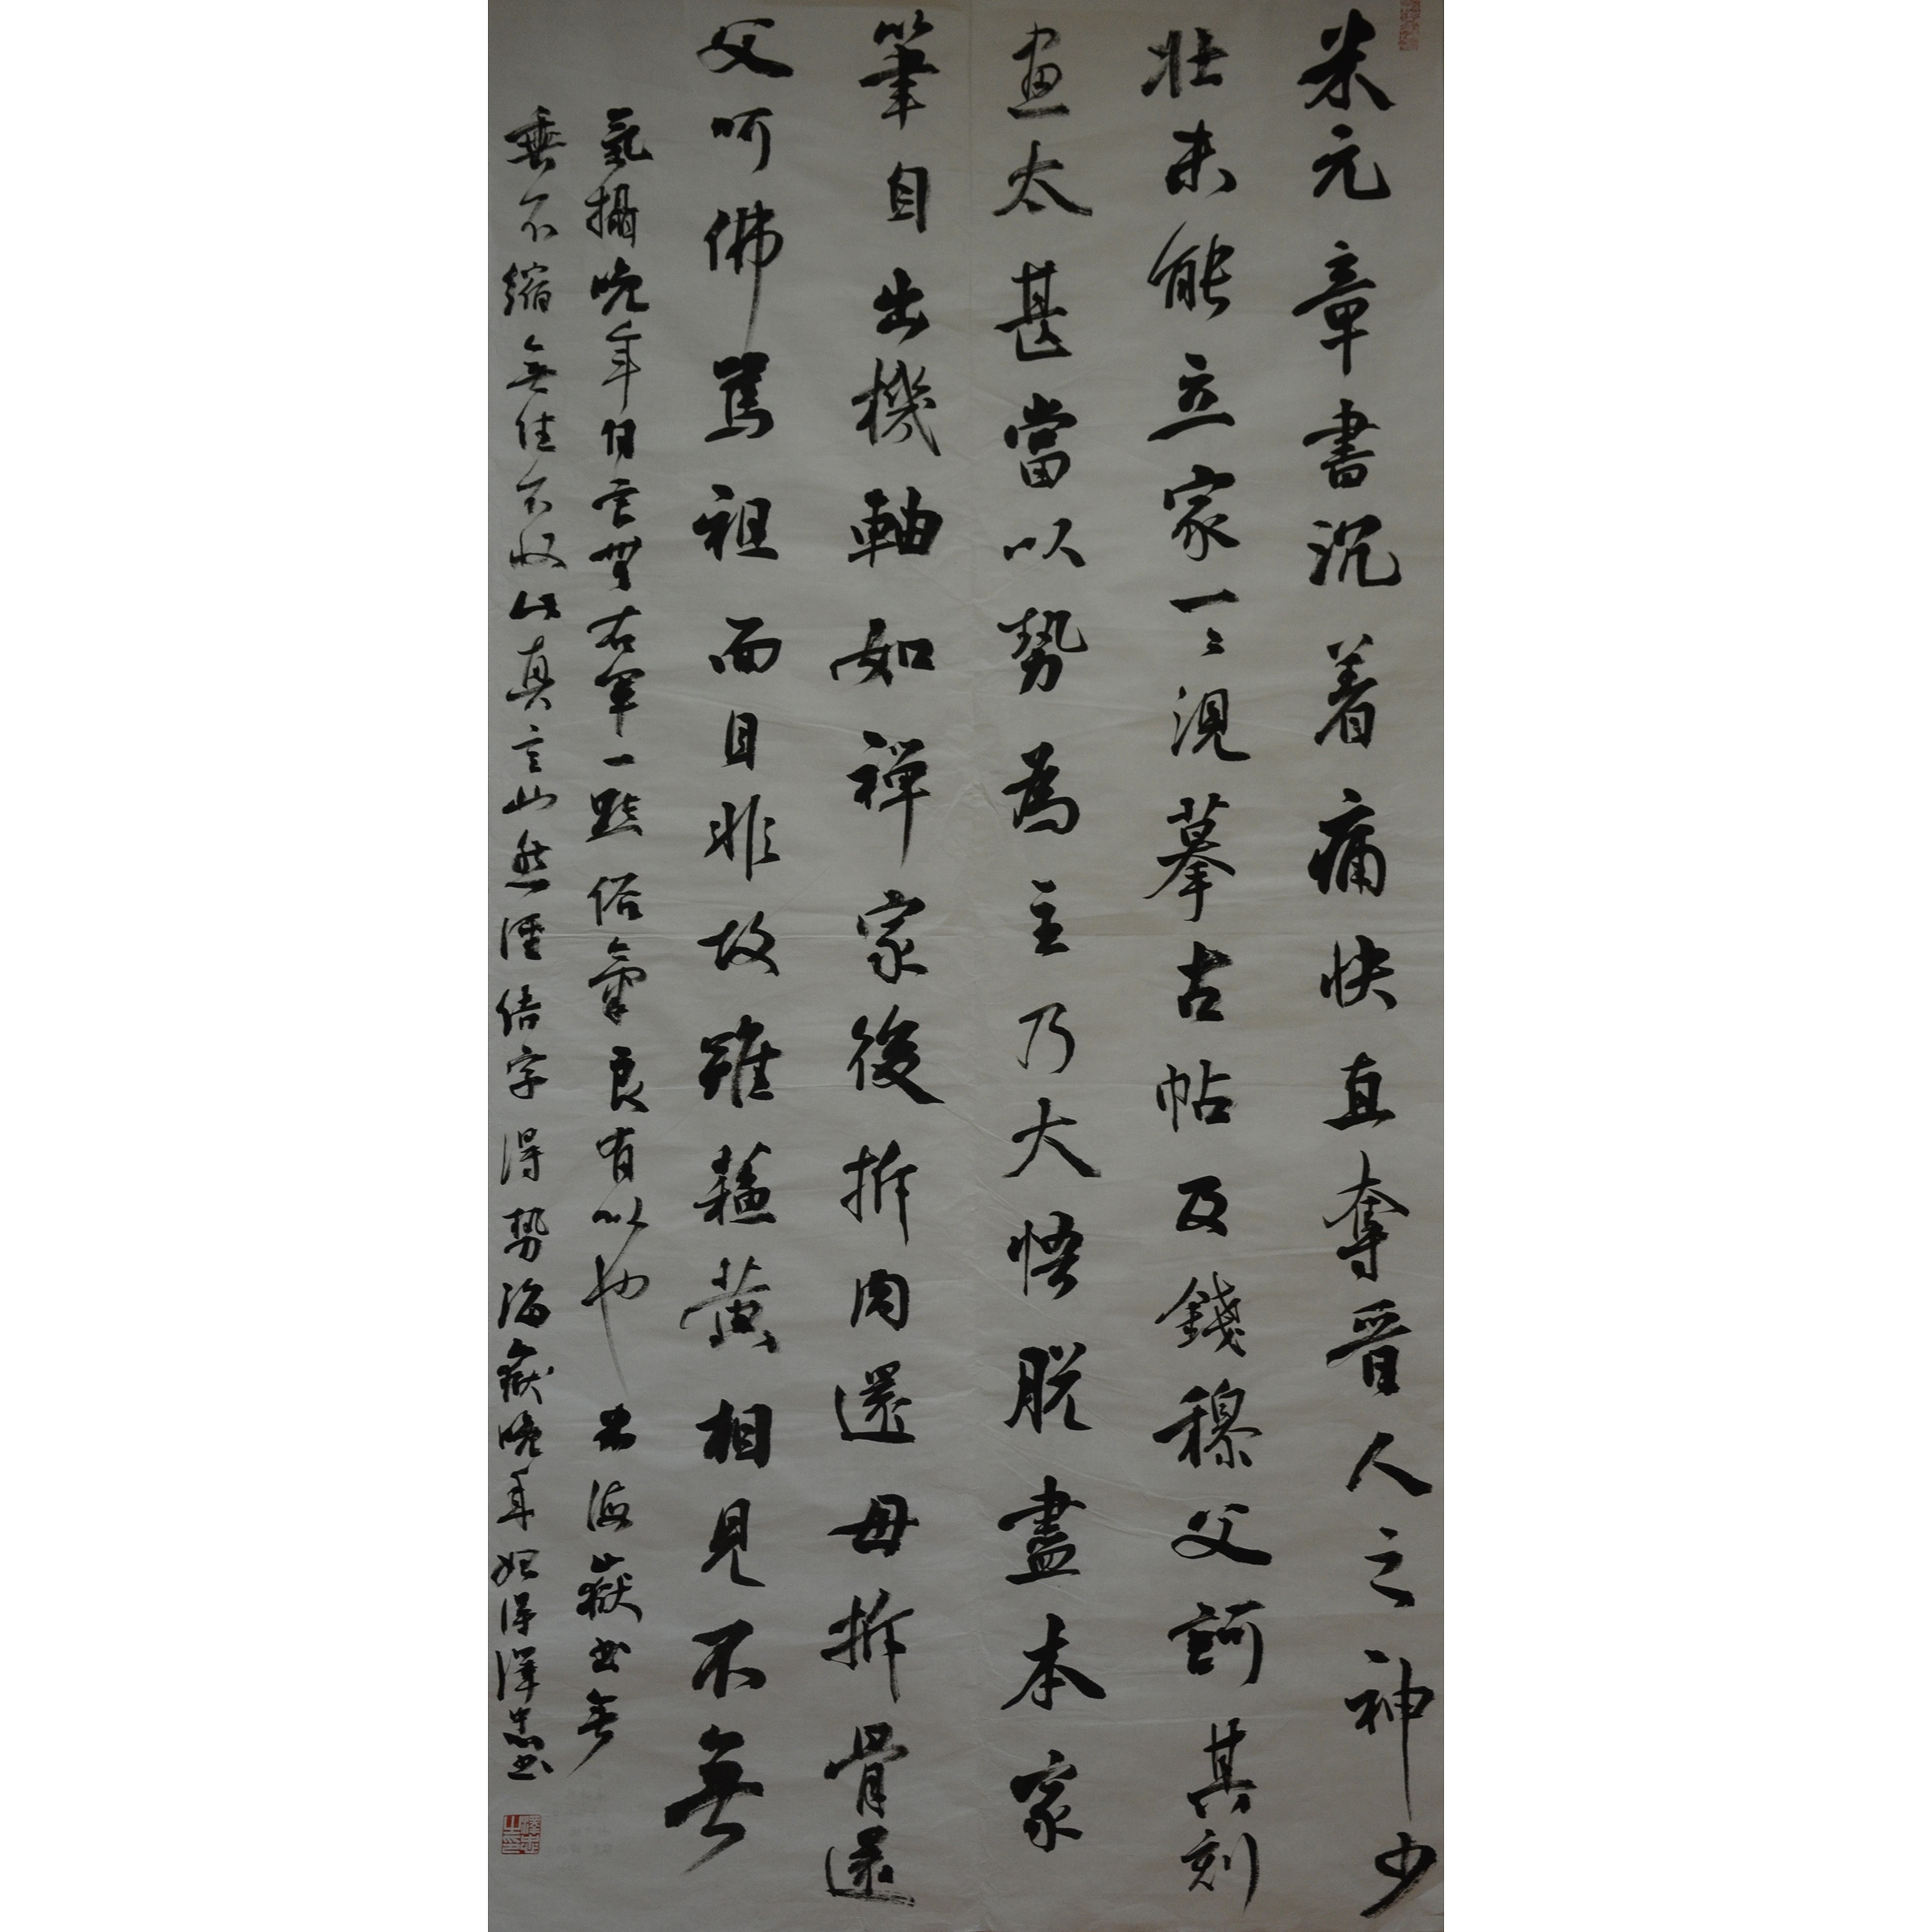 米元章書沉着痛快直奪晋人之神少
壮未能立家一々規摹古帖及錢穆父訶其刻
画太甚當以勢為主乃大悟脱盡本家
筆自出機軸如禅家後拆肉還母拆骨還
父呵佛罵祖面目非故雖蘇黄相見不無
氣攝晚年自言無右軍一點俗氣良有以也 米海嶽書無
垂不縮無往不收此真言也然須結字得勢海嶽晚年始得澤忠書